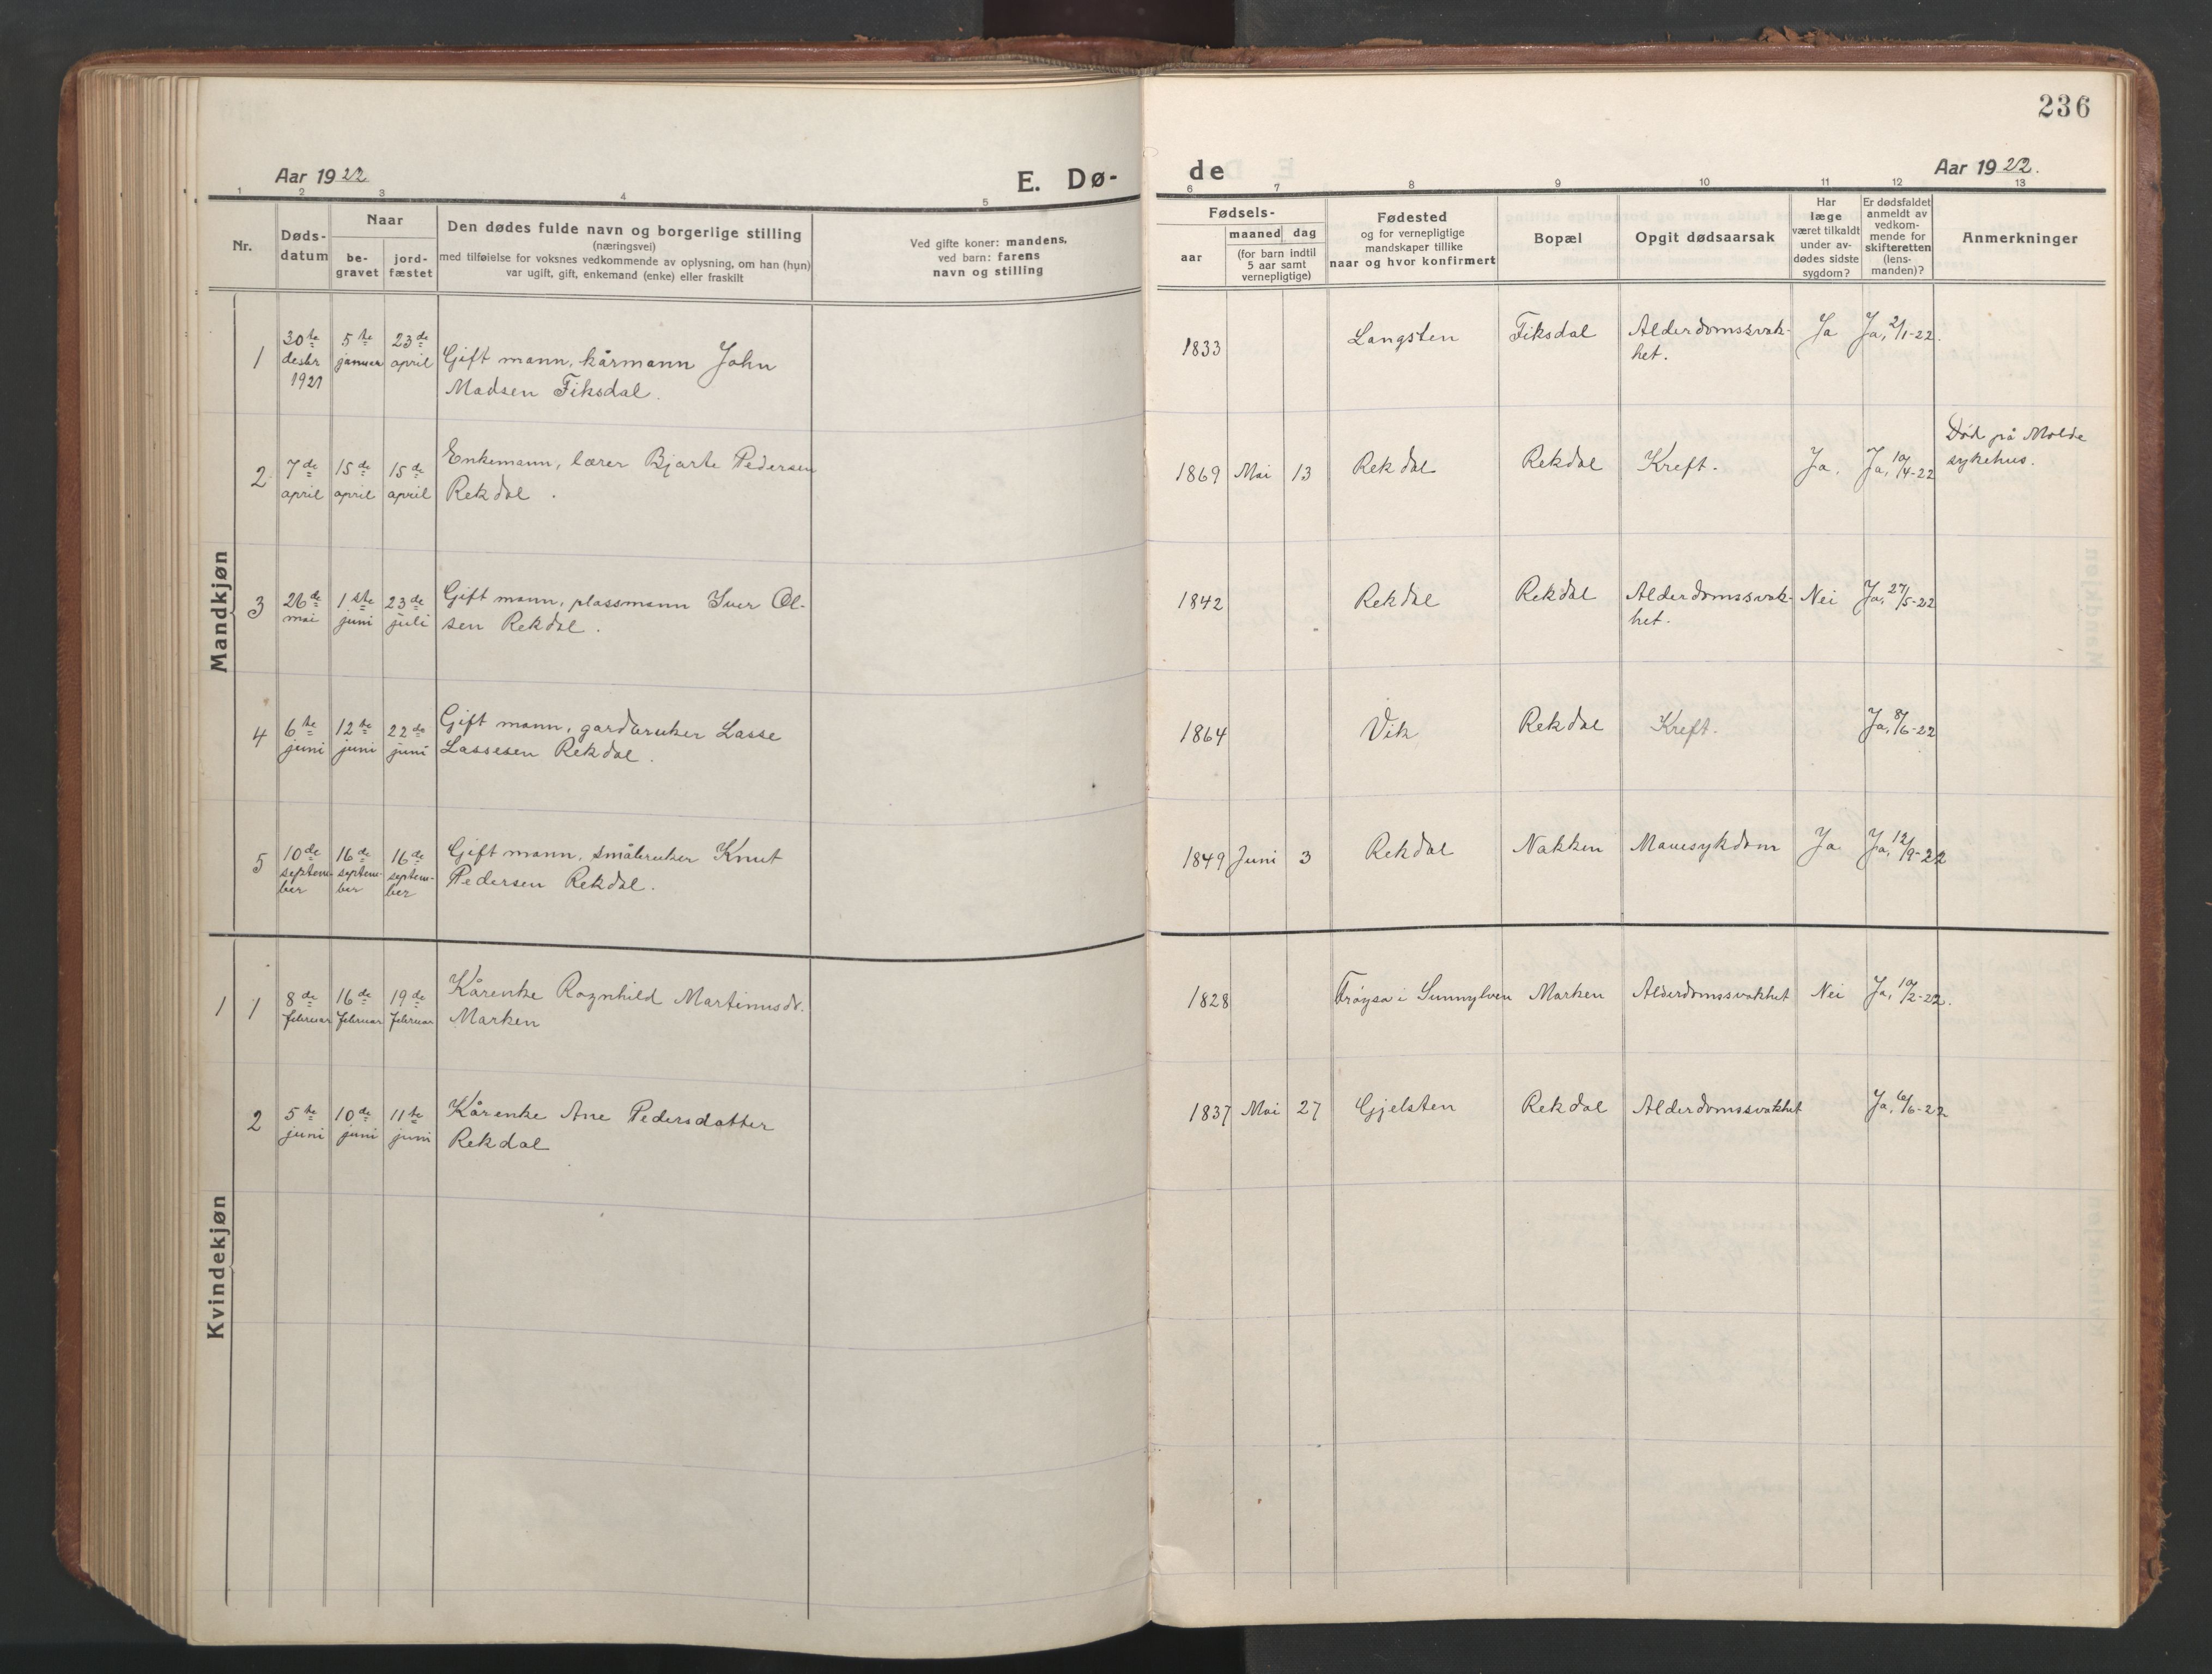 236
Aar 1922
E. Dø-
de
Aar 1922.
1 2 3 4 5 6 7 8 9 10 11 12 13
Nr.
Døds-
datum
Naar
be-
gravet
jord-
fæstet
Den dødes fulde navn og borgerlige stilling
(næringsvei)
med tilføielse for voksnes vedkommende av oplysning, om han (hun)
var ugift, gift, enkemand (enke) eller fraskilt
Ved gifte koner: mandens,
ved barn: farens
navn og stilling
Fødsels-
aar
maaned dag
(for barn indtil
5 aar samt
vernepligtige)
Fødested
og for vernepligtige
mandskaper tillike
naar og hvor konfirmert
Bopæl
Opgit dødsaarsak
Har
læge
været tilkaldt
under av-
dødes sidste
sygdom?
Er dødsfaldet
anmeldt av
vedkom-
mende for
skifteretten
(lens-
manden)?
Anmerkninger
Mandkjøn
1
30te
desbr
1921
5te
januar
23de
april
Gift mann, kårmann John
Madsen Fiksdal.
1833
Langsten
Fiksdal
Alderdomssvak-
het.
Ja
Ja, 2/1-22.
2
7de
april
15de
april
15de
april
Enkemann, lærer Bjarte Pedersen
Rekdal.
1869 Mai 13
Rekdal
Rekdal
Kreft.
Ja.
Ja, 10/4-22
Død på Molde
sykehus.
3
26de
mai
1ste
juni
23de
juli
Gift mann, plassmann Iver Ol-
sen Rekdal.
1842
Rekdal
Rekdal
Alderdomssvak-
het.
Nei
Ja, 27/5-22
4
6te
juni
12te
juni
22de
juni
Gift mann, gardbruker Lasse
Lassesen Rekdal.
1864
Vik
Rekdal
Kreft.
Ja, 8/6-22
5
10de
septem-
ber
16de
septem-
ber
16de
septem-
ber
Gift mann, småbruker Knut
Pedersen Rekdal.
1849 Juni 3
Rekdal
Nakken
Mavesykdom
Ja
Ja, 12/9-22
Kvindekjøn
1 1
8de
februar
16de
februar
19de
februar
Kårenke Ragnhild Martinusdr.
Marken
1828
Frøysa i Sunnylven
Marken
Alderdomssvakhet
Nei
Ja, 10/2-22.
2
5te
juni
10de
juni
11te
juni
Kårenke Ane Pedersdatter
Rekdal
1837 Mai 27
Gjelsten
Rekdal
Alderdomssvakhet
Ja, 6/6-22